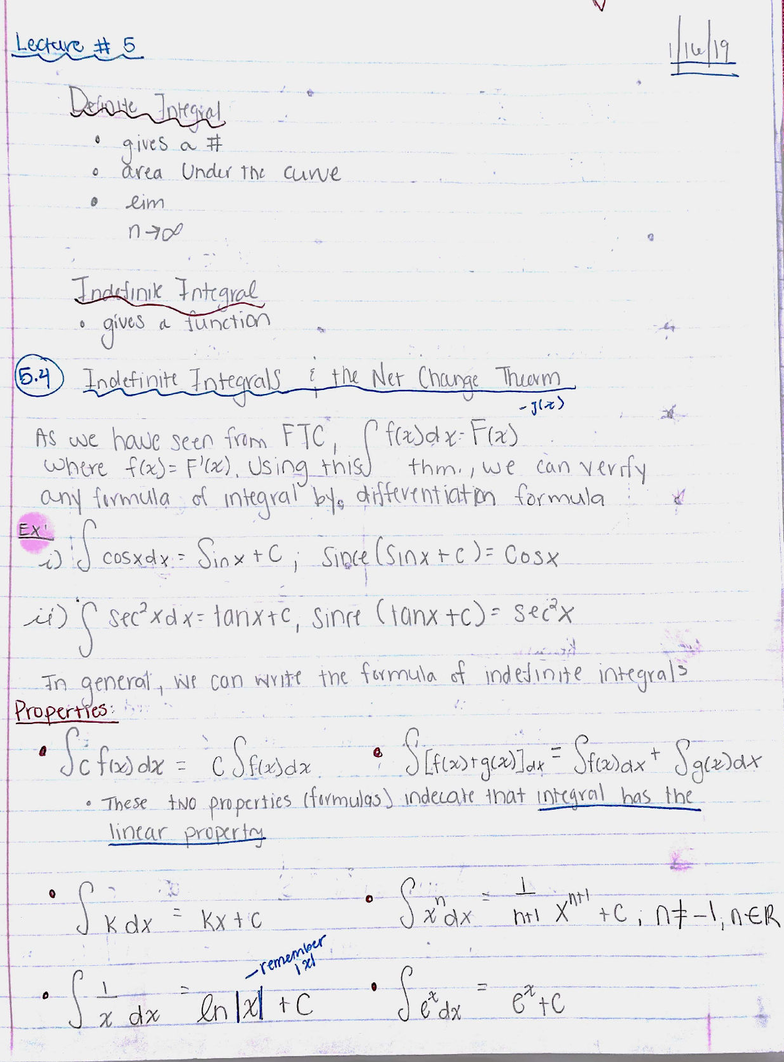 Lecture # 5
1/16/19
Definite Integral
• gives a #
• area under the curve
• lim
n→∞
Indefinite Integral
• gives a function
5.4 Indefinite Integrals & the Net Change Theorm
As we have seen from FTC, ∫ f(x)dx = F(x)
where f(x) = F'(x). Using this thm., we can verify
any formula of integral by differentiation formula
Ex:
i) ∫ cosxdx = Sinx + C ; since (Sinx + c) = Cosx
ii) ∫ sec²xdx = tanx+c, since (tanx + c) = sec²x
In general, we can write the formula of indefinite integrals
Properties:
• ∫c f(x) dx = c ∫f(x)dx • ∫[f(x)+g(x)]dx = ∫f(x)dx + ∫g(x)dx
• These two properties (formulas) indecate that integral has the
linear property
• ∫ k dx = kx + c • ∫ xⁿdx = 1/(n+1) xⁿ⁺¹ + C ; n ≠ -1, n∈R
- remember
|x|
• ∫ 1/x dx = ln |x| + C • ∫ eˣdx = eˣ+C